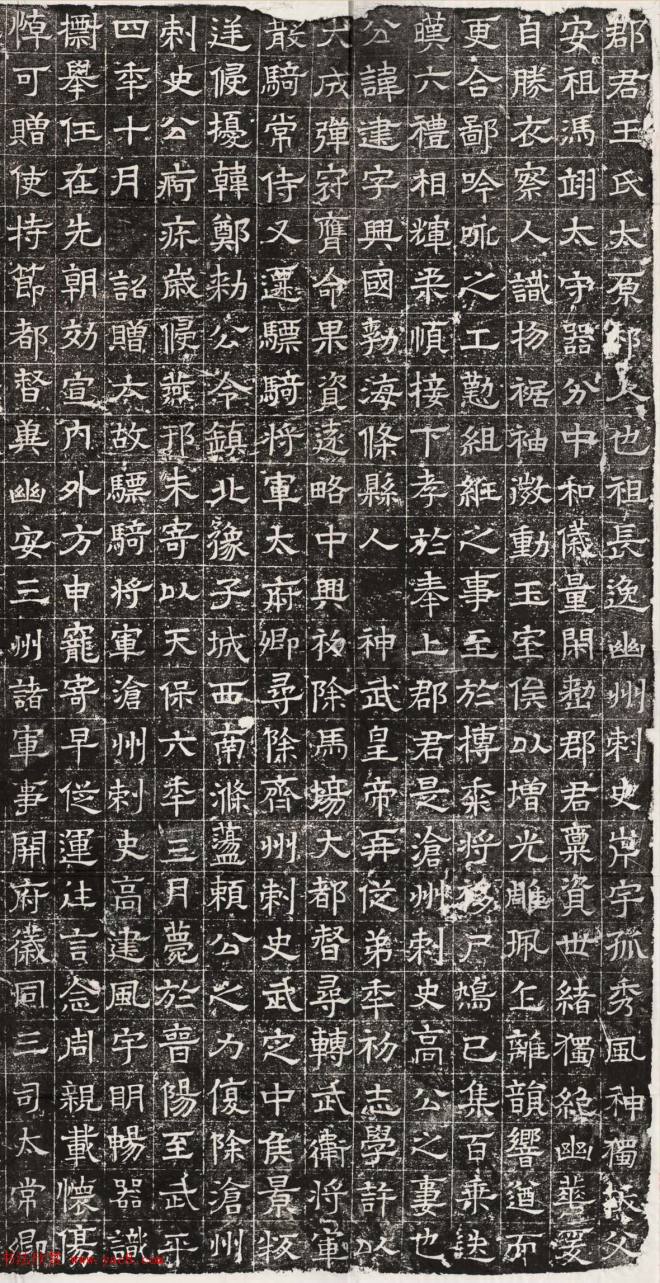 郡君王氏太原祁人也祖長逸幽州刺史岸宇孤秀風神獨峻父
安祖馮翊太守器分中和儀量閑郡君稟資世緒獨絕幽華爰
自勝衣察人識物裾袖微動玉室俟以增光雕珮乍離韻響遒而
更合鄙吟詠之工懃組紝之事至於摶黍將移尸鳩已集百乘
暎六禮相輝柔順接下孝於奉上郡君是滄州刺史高公之妻也
公諱建字興國勃海條縣人 神武皇帝再從弟年初志學許以
大成彈冠膺命果資遠略中興初除馬場大都督尋轉武衛將軍
散騎常侍又遷驃騎將軍太府卿尋除齊州刺史武定中侯景叛
逆侵擾韓鄭勑公令鎮北豫子城西南滌蕩賴公之力復除滄州
刺史公痾疢歲侵燕邦未寄以天保六年三月薨於晉陽至武平
四年十月 詔贈大故驃騎將軍滄州刺史高建風宇明暢器識
舉任在先朝効宣內外方申寵寄早從運往言念周親載懷
悼可贈使持節都督冀幽安三州諸軍事開府儀同三司太常卿
www.yac8.com